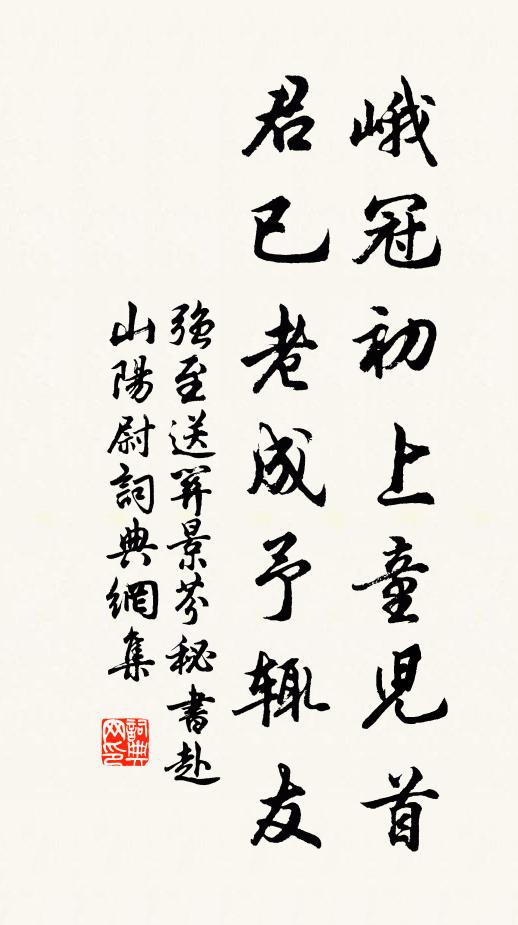 峨冠初上童兒首
君已老成予辄友
强至送羿景芬秘書赴
山陽尉詞典網集
詞典網印